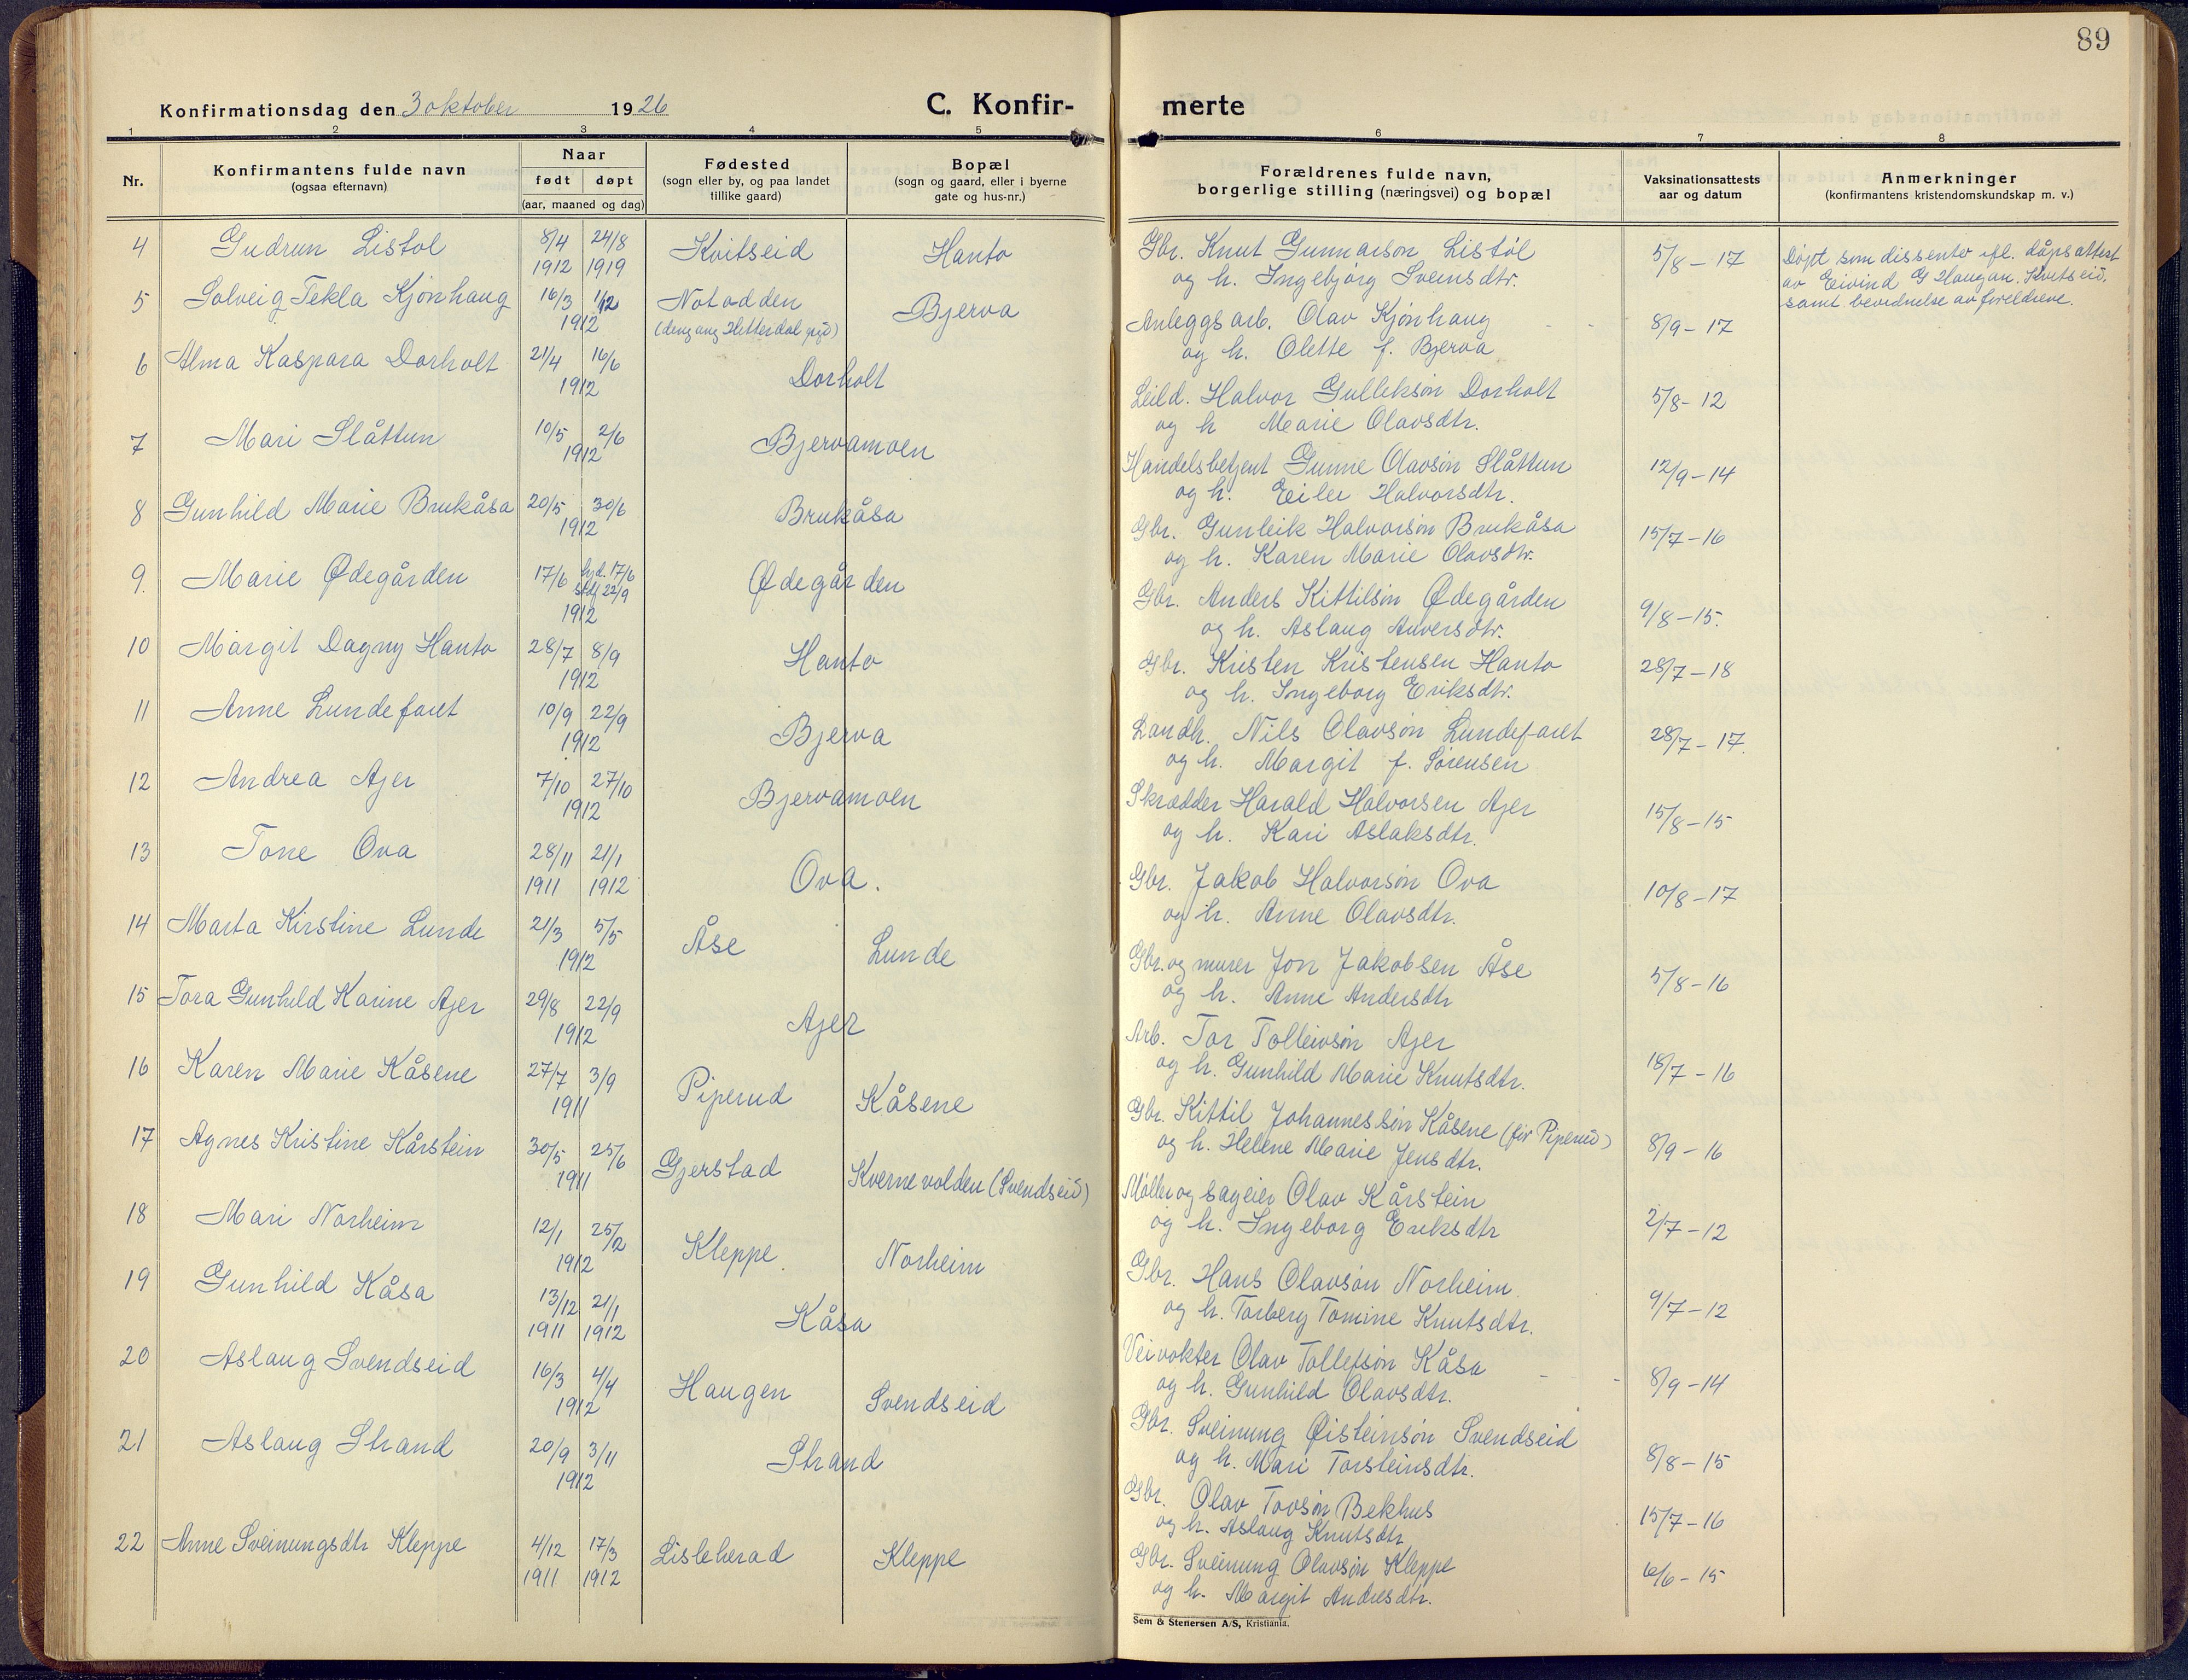 89
Konfirmationsdag den 3 oktober 1926
C. Konfir-
merte
1 2 3 4 5 6 7 8
Nr.
Konfirmantens fulde navn
(ogsaa efternavn)
Naar
født døpt
(aar, maaned og dag)
Fødested
(sogn eller by, og paa landet
tillike gaard)
Bopæl
(sogn og gaard, eller i byerne
gate og hus-nr.)
Forældrenes fulde navn,
borgerlige stilling (næringsvei) og bopæl
Vaksinationsattests
aar og datum
Anmerkninger
(konfirmantens kristendomskundskap m. v.)
4 Gudrun Listøl 8/4 24/8 Kvitseid Hanto Gbr. Knut Gunnarson Listøl 5/8 - 17 Døpt som dissenter ifl. dåpsattest
1912 1919 og h. Ingebjørg Sveinsdtr. av Eivind G Haugan. Kvitseid,
samt bevidnelse av foreldrene.
5 Solveig Tekla Kjønhaug 16/3 1/12 Notodden Bjerva Anleggsarb. Olav Kjønhaug 8/9 - 17
1912 (dengang Hitterdal pgd) og h. Olette f. Bjerva
6 Alma Kaspara Dorholt 21/4 16/6 Dorholt Leild. Halvor Gulleksøn Dorholt 5/8 - 12
1912 og h Marie Olavsdtr.
7 Mari Slåttun 10/5 2/6 Bjervamoen Handelsbetjent Gunne Olavsøn Slåttun 12/9 - 14
1912 og h. Halvorsdtr.
8 Gunhild Marie Brukåsa 20/5 30/6 Brukåsa Gbr. Gunleik Halvorsøn Brukåsa 15/7 - 16
1912 og h. Karen Marie Olavsdtr.
9. Marie Ødegården 17/6 hjd. 17/6 Ødegården Gbr. Anders Kittilsøn Ødegården 9/8 - 15.
stdf 22/9
1912 og h. Aslaug Anversdtr.
10 Margit Dagny Hanto 28/7 8/9 Hanto Gbr. Kristen Kristensen Hanto 28/7 - 18
1912 og h. Ingeborg Eriksdtr.
11 Anne Lundefaret 10/9 22/9 Bjerva Landh. Nils Olavsøn Lundefaret 28/7 - 17.
1912 og h. Margit f. Sørensen
12 Andrea Ajer 7/10 27/10 Bjervamoen Skrædder Harald Halvorsen Ajer 15/8 - 15
1912 og h. Kari Aslaksdtr.
13 Tone Ova 28/11 21/1 Ova. Gbr. Jakob Halvorsøn Ova 10/8 - 17
1911 1912 og h. Anne Olavsdtr.
14 Marta Kirstine Lunde 21/3 5/5 Åse Lunde Gbr. og murer Jon Jakobsen Åse 5/8 - 16
1912 og h. Anne Andersdtr
15 Tora Gunhild Karine Ajer 29/8 22/9 Ajer Arb. Tor Tolleivsøn Ajer 18/7 - 16
1912 og h. Gunhild Marie Knutsdtr.
16 Karen Marie Kåsene 27/7 3/9 Piperud Kåsene Gbr. Kittil Johannessøn Kåsene (før Piperud) 8/9 - 16
1911 og h. Helene Marie Jensdtr.
17 Agnes Kristine Kårstein 30/5 25/6 Gjerstad Kvernevolden (Svendseid) Møller og sageier Olav Kårstein 2/7 - 12
1911 og h. Ingeborg Eriksdtr
18 Mari Norheim 12/1 25/2 Kleppe. Norheim Gbr. Hans Olavsøn Norheim. 9/7 - 12
1912 og h. Torberg Tomine Knutsdtr.
19 Gunhild Kåsa 13/12 21/1 Kåsa Veivokter Olav Tollefsøn Kåsa 8/9 - 14
1911 1912 og h. Gunhild Olavsdtr.
20 Aslaug Svendseid 16/3 4/4 Haugen Svendseid Gbr. Sveinung Øisteinsøn Svendseid 8/8 - 15
1912 og h. Mari Torsteinsdtr.
21 Aslaug Strand 20/9 3/11 Strand Gbr. Olav Tovsøn Bekhus 15/7 - 16
1912 og h. Aslaug Knutsdtr
22 Anne Sveinungsdtr Kleppe 4/12 17/3 Lisleherad Kleppe Gbr. Sveinung Olavsøn Kleppe 6/6 - 15
1911 1912 og h. Margit Andresdtr.
Sem & Stenersen A/S, Kristiania.